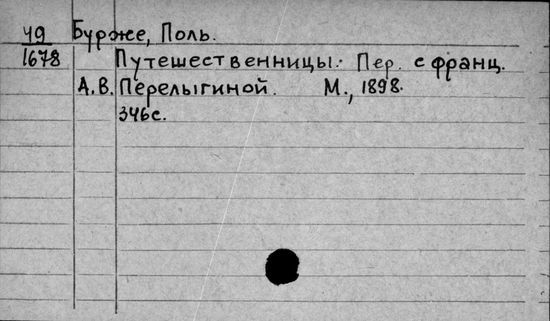 49 Бурже, Поль.
1678 Путешественницы. Пер. с франц.
А.В. Перелыгиной. М., 1898.
346с.